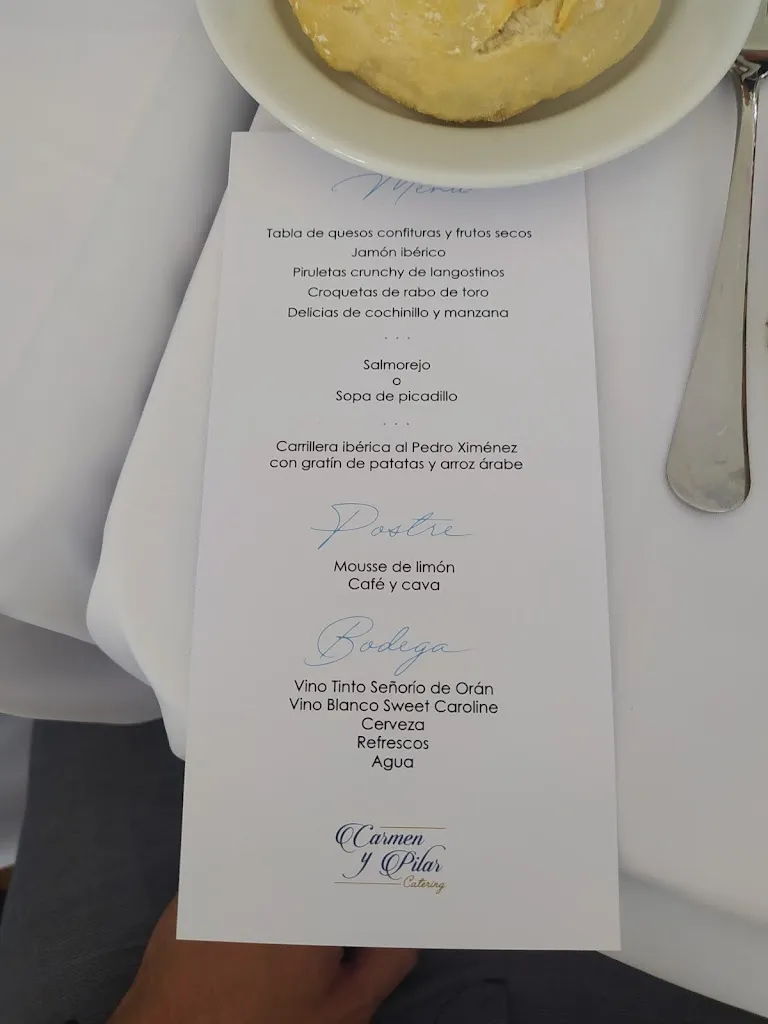 Menú
Tabla de quesos confituras y frutos secos
Jamón ibérico
Piruletas crunchy de langostinos
Croquetas de rabo de toro
Delicias de cochinillo y manzana
. . .
Salmorejo
o
Sopa de picadillo
. . .
Carrillera ibérica al Pedro Ximénez
con gratín de patatas y arroz árabe
Postre
Mousse de limón
Café y cava
Bodega
Vino Tinto Señorío de Orán
Vino Blanco Sweet Caroline
Cerveza
Refrescos
Agua
Carmen
y Pilar
Catering